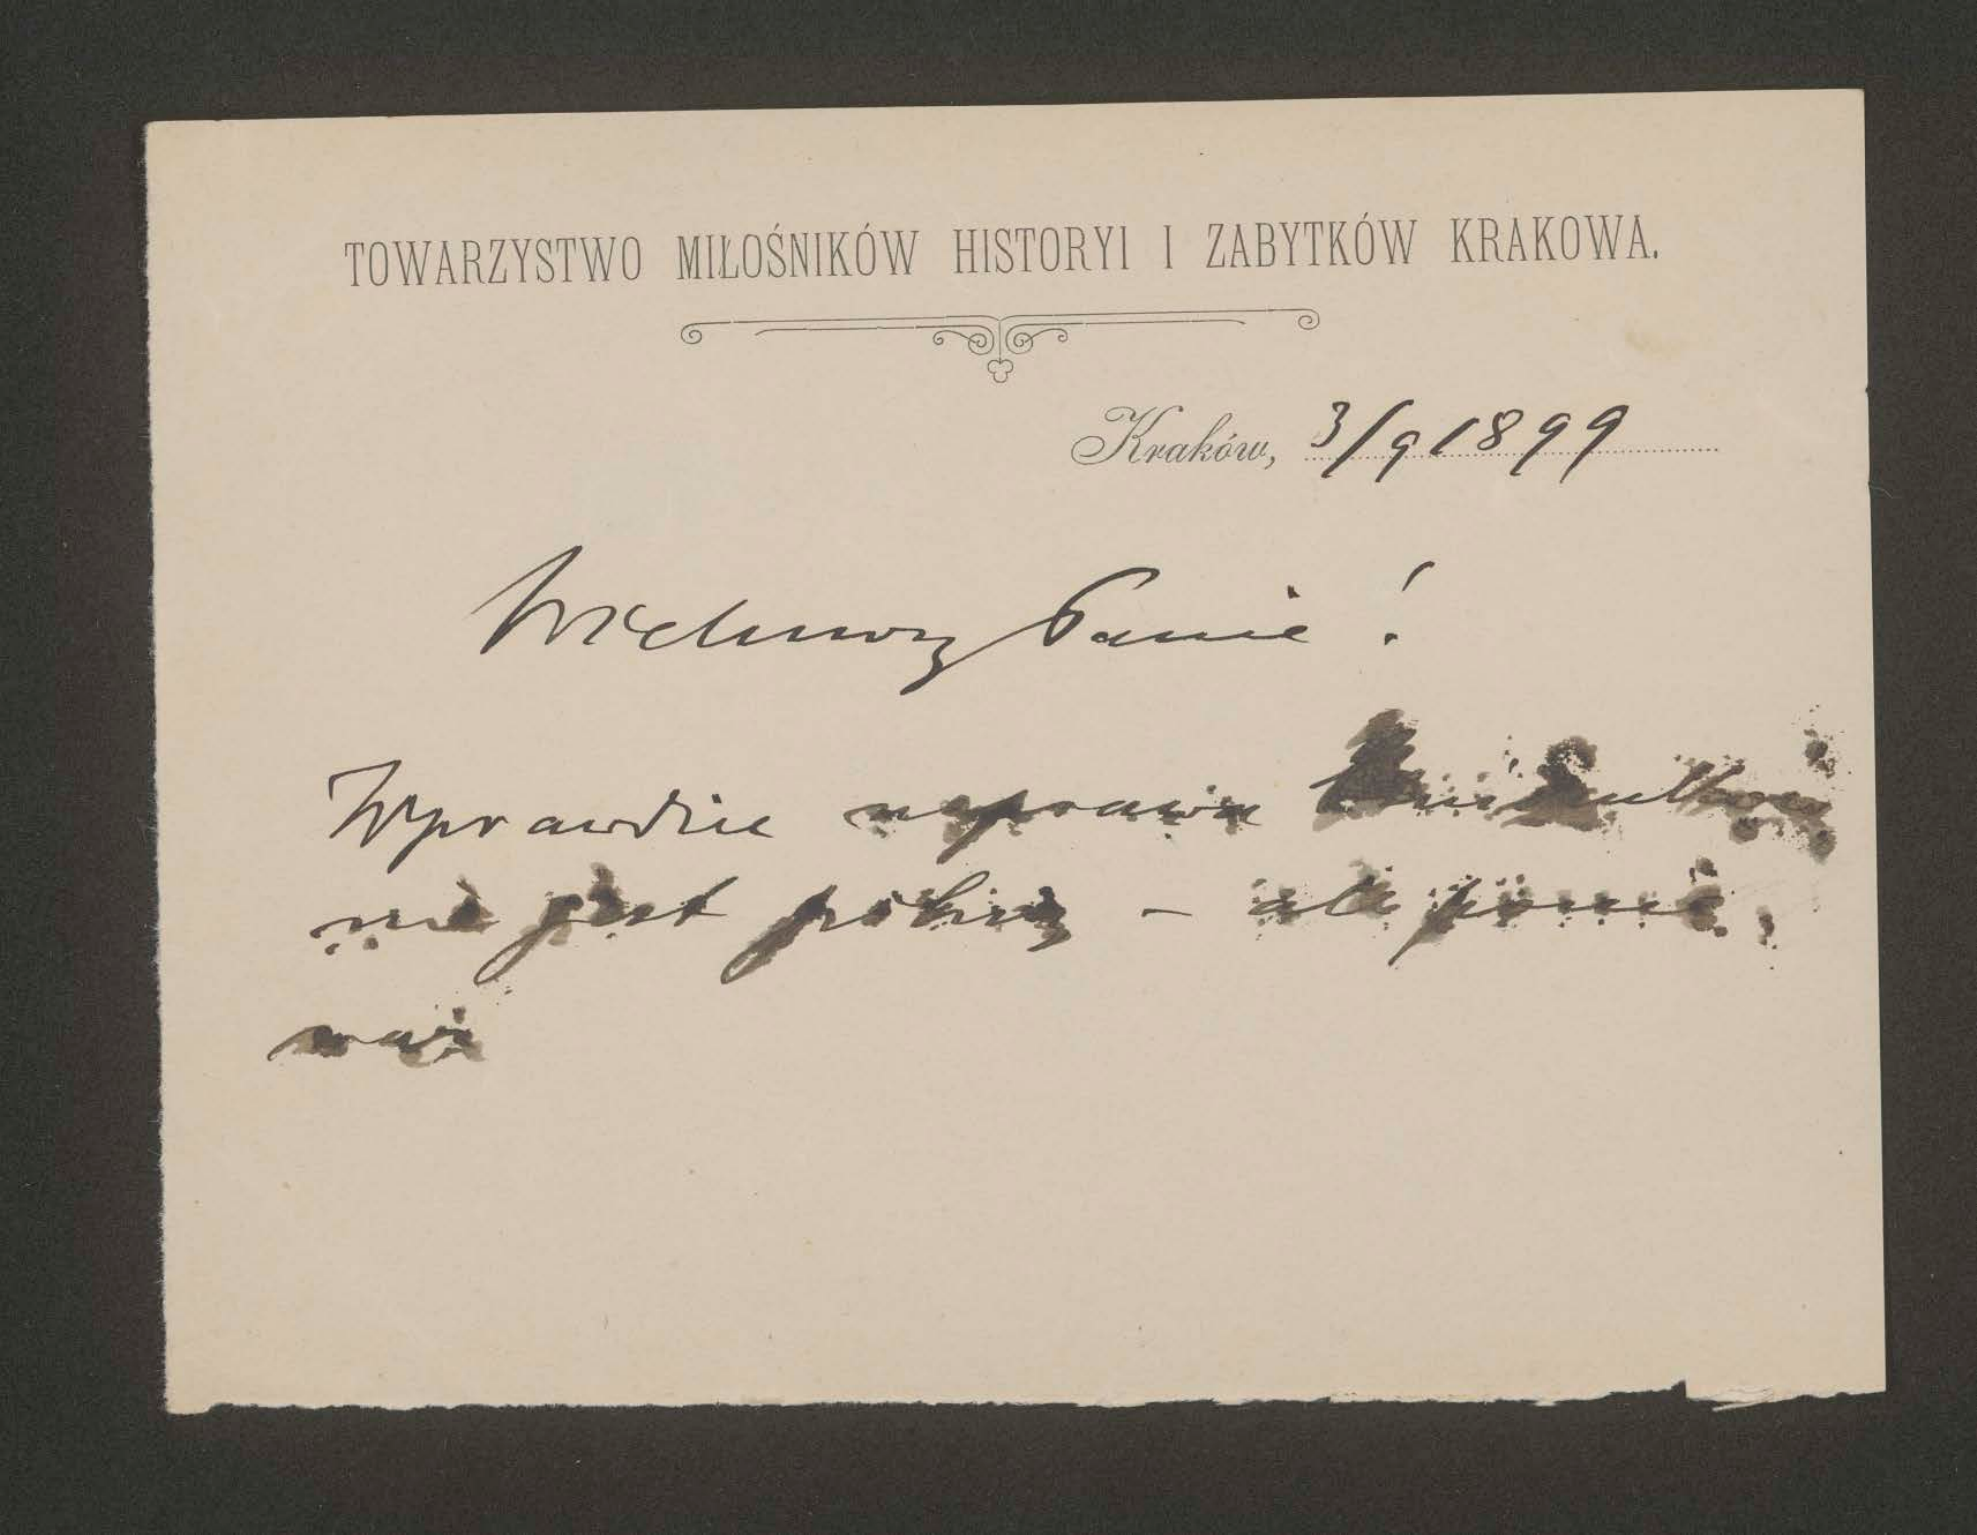 TOWARZYSTWO MIŁOŚNIKÓW HISTORYI I ZABYTKÓW KRAKOWA.
Kraków, 3/9 1899
Wielmożny Panie!
Wprawdzie naprawa
nie jest pilną – ale ponie
waż